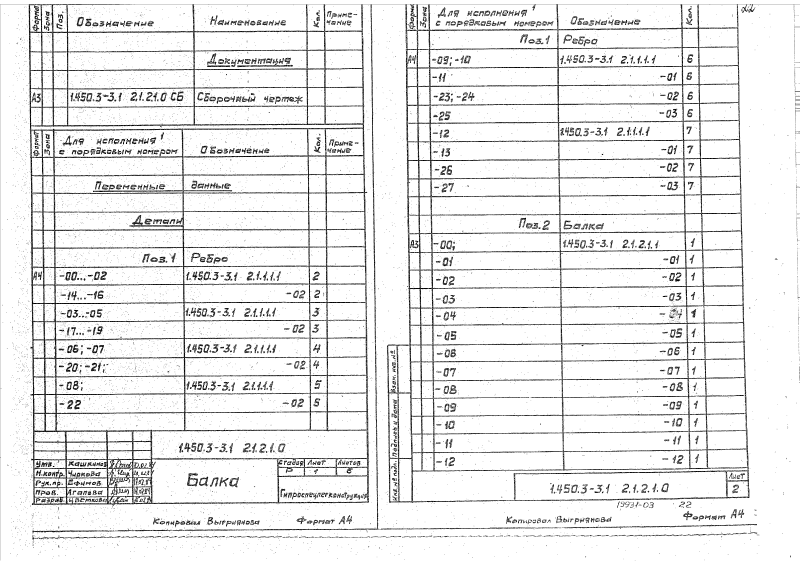 Формат Зона Поз. Обозначение Наименование Кол. Примечание
Документация
А3 1.450.3-3.1 2.1.2.1.0 СБ Сборочный чертеж
Формат Зона Для исполнения 1 с порядковым номером Обозначение Кол. Примечание
Переменные данные
Детали
Поз.1 Ребро
А4 -00...-02 1.450.3-3.1 2.1.1.1.1 2
-14...-16 -02 2
-03...-05 1.450.3-3.1 2.1.1.1.1 3
-17...-19 -02 3
-06; -07 1.450.3-3.1 2.1.1.1.1 4
-20; -21; -02 4
-08; 1.450.3-3.1 2.1.1.1.1 5
-22 -02 5
1.450.3-3.1 2.1.2.1.0
Утв. Кашкинов
Н.контр. Чиркова
Рук.пр. Ефимов
Пров. Агапова
Разраб. Цветкова
Балка
Стадия Лист Листов
Р 1 6
Гипроспецлегконструкция
Копировал Выгриянова Формат А4
22
Формат Зона Для исполнения 1 с порядковым номером Обозначение Кол.
Поз.1 Ребро
А4 -09; -10 1.450.3-3.1 2.1.1.1.1 6
-11 -01 6
-23; -24 -02 6
-25 -03 6
-12 1.450.3-3.1 2.1.1.1.1 7
-13 -01 7
-26 -02 7
-27 -03 7
Поз.2 Балка
А3 -00; 1.450.3-3.1 2.1.2.1.1 1
-01 -01 1
-02 -02 1
-03 -03 1
-04 -04 1
-05 -05 1
-06 -06 1
-07 -07 1
-08 -08 1
-09 -09 1
-10 -10 1
-11 -11 1
-12 -12 1
Инв.№ подл. Подпись и дата Взам. инв.№
1.450.3-3.1 2.1.2.1.0
Лист
2
19931-03 22
Копировал Выгриянова Формат А4